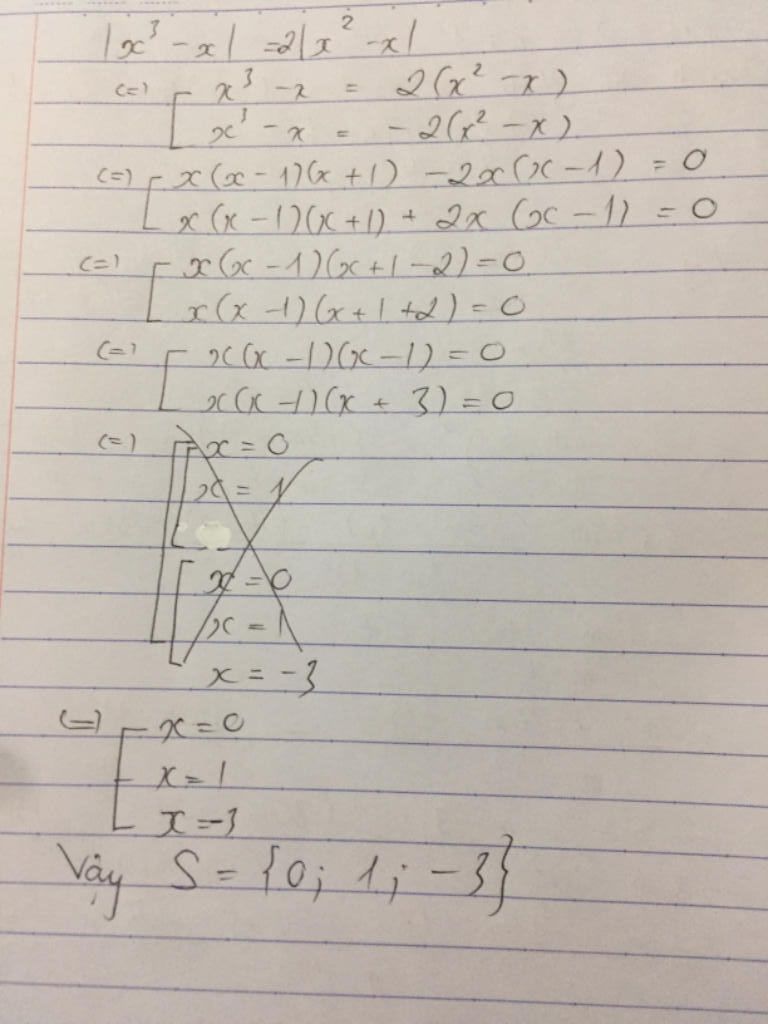 |x³ - x| = 2|x² - x|
(=) [ x³ - x = 2(x² - x)
x³ - x = -2(x² - x)
(=) [ x(x - 1)(x + 1) - 2x(x - 1) = 0
x(x - 1)(x + 1) + 2x(x - 1) = 0
(=) [ x(x - 1)(x + 1 - 2) = 0
x(x - 1)(x + 1 + 2) = 0
(=) [ x(x - 1)(x - 1) = 0
x(x - 1)(x + 3) = 0
(=) [ [ x = 0
x = 1
[ x = 0
x = 1
x = -3
(=) [ x = 0
x = 1
x = -3
Vậy S = {0; 1; -3}